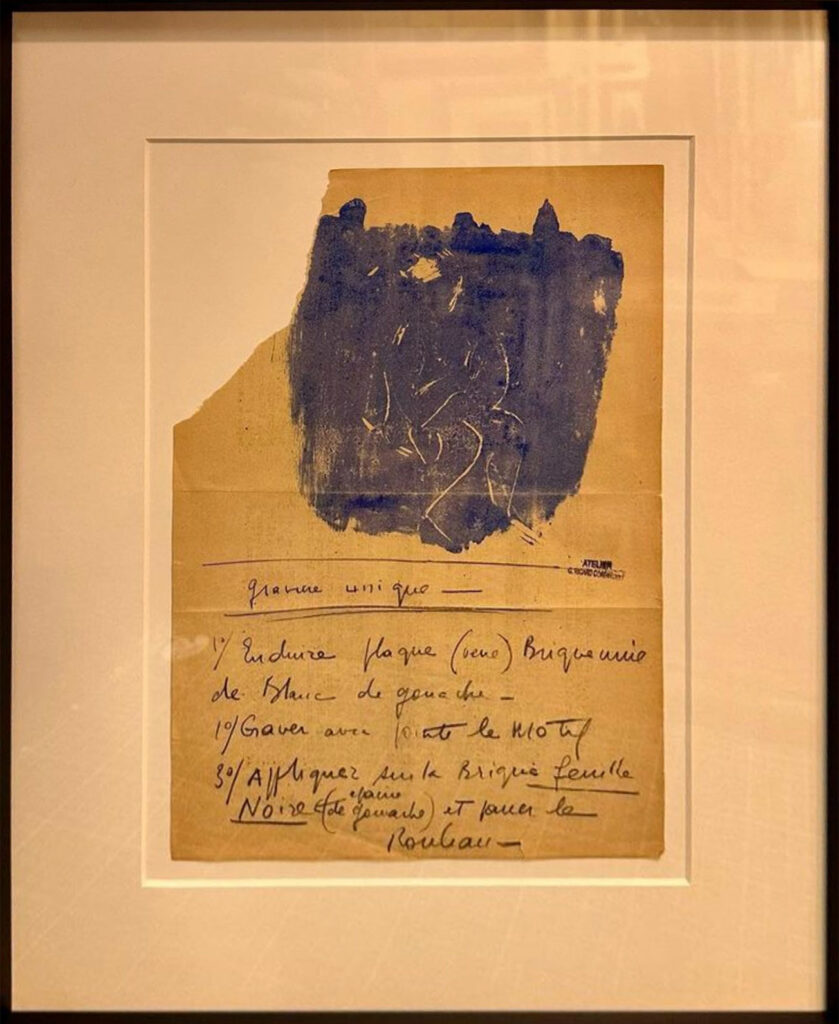 ATELIER
gravure unique —
1°/ Enduire plaque (verre) Brique unie
de Blanc de gouache —
1°/ Graver avec pointe le Motif
3°/ Appliquer sur la Brique feuille
Noire (de gouache) et passer le
Rouleau —